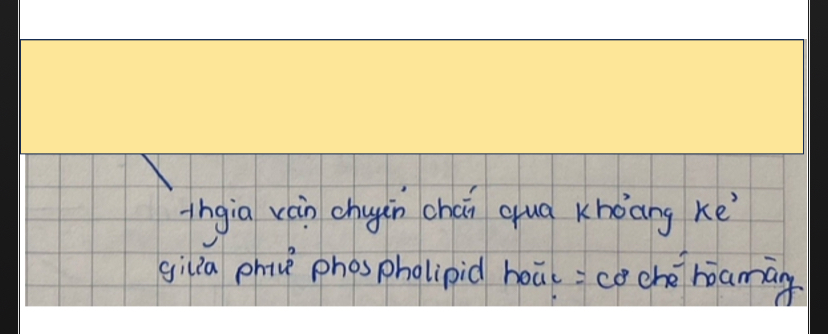 thgia vận chuyển chất qua khoảng kẽ
giữa phtử phospholipid hoặc = cơ chế hòa màng